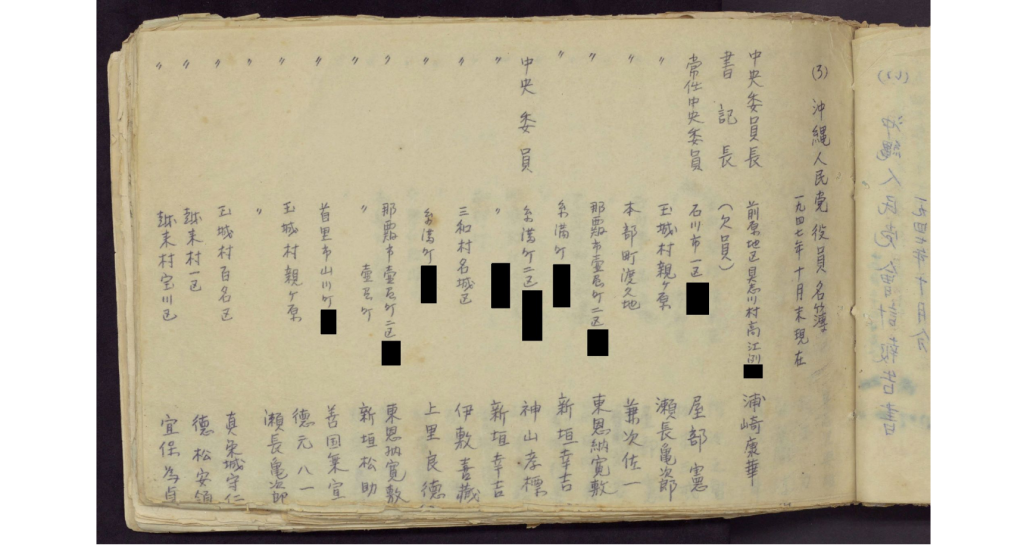 (3) 沖縄人民党役員名簿
一九四七年十月末現在
中央委員長 前原地区具志川村高江洲 浦崎康華
書記長 (欠員)
常任中央委員 石川市一区 屋部憲
〃 玉城村親ヶ原 瀬長亀次郎
本部町渡久地 兼次佐一
〃 那覇市壷屋町二区 東恩納寛敷
〃 糸満町 新垣幸吉
中央委員 糸満町二区 神山孝標
〃 〃 新垣幸吉
〃 三和村名城区 伊敷喜蔵
〃 糸満町 上里良徳
〃 那覇市壷屋町二区 東恩納寛敷
〃 〃 壷屋町 新垣松助
〃 首里市山川町
〃 玉城村親ヶ原 徳元八一
〃 〃 瀬長亀次郎
〃 玉城村百名区 真栄城守仁
〃 越来村一区 徳松安領
〃 越来村室川区 宜保為貞